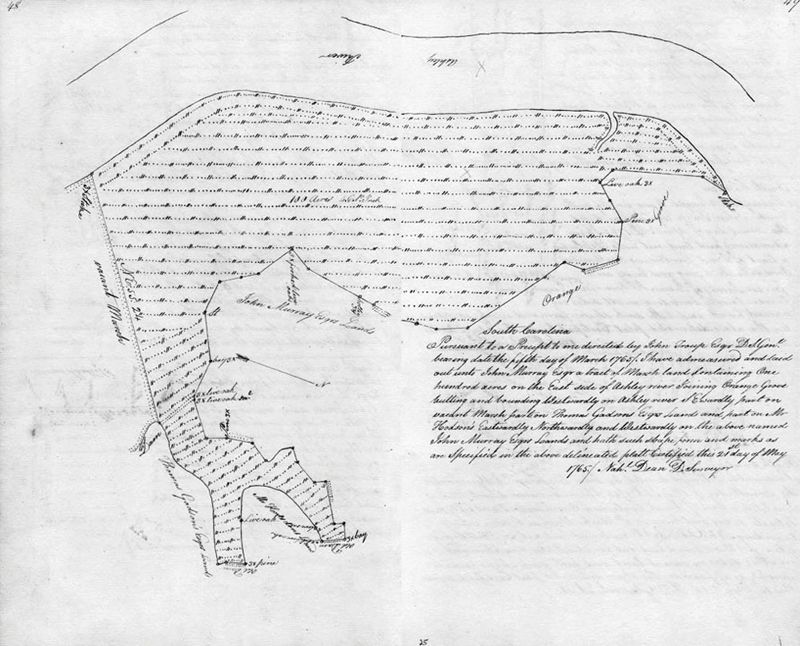 48
49
Ashley River
Live oak 3X
Pine 3X
Orange Grove
100 Acres
Stake
N 15 E 24
vacant Marsh
John Murray Esqrs Lands
Orange
N
Live oak
Pine 3X
Thomas Gadsens Esqrs Lands
Live oak
3X pine
Old Dam
South Carolina
Pursuant to a Precept to me directed by John Troup Esqr D. S. Genl.
bearing date the fifth day of March 1765/ I have admeasured and laid
out unto John Murray Esqr a tract of Marsh land Containing One
hundred acres on the East side of Ashley river Joining Orange Grove
butting and bounding Westwardly on Ashley river S Ewardly part on
vacant Marsh part on Thomas Gadsens Esqrs Lands and part on Mr
Hodson's Eastwardly Northwardly and Westwardly on the above named
John Murray Esqrs Lands and hath such shape form and marks as
are Specified in the above delineated platt Certified this 21st day of May
1765/ Nahl. Dean D. Surveyor